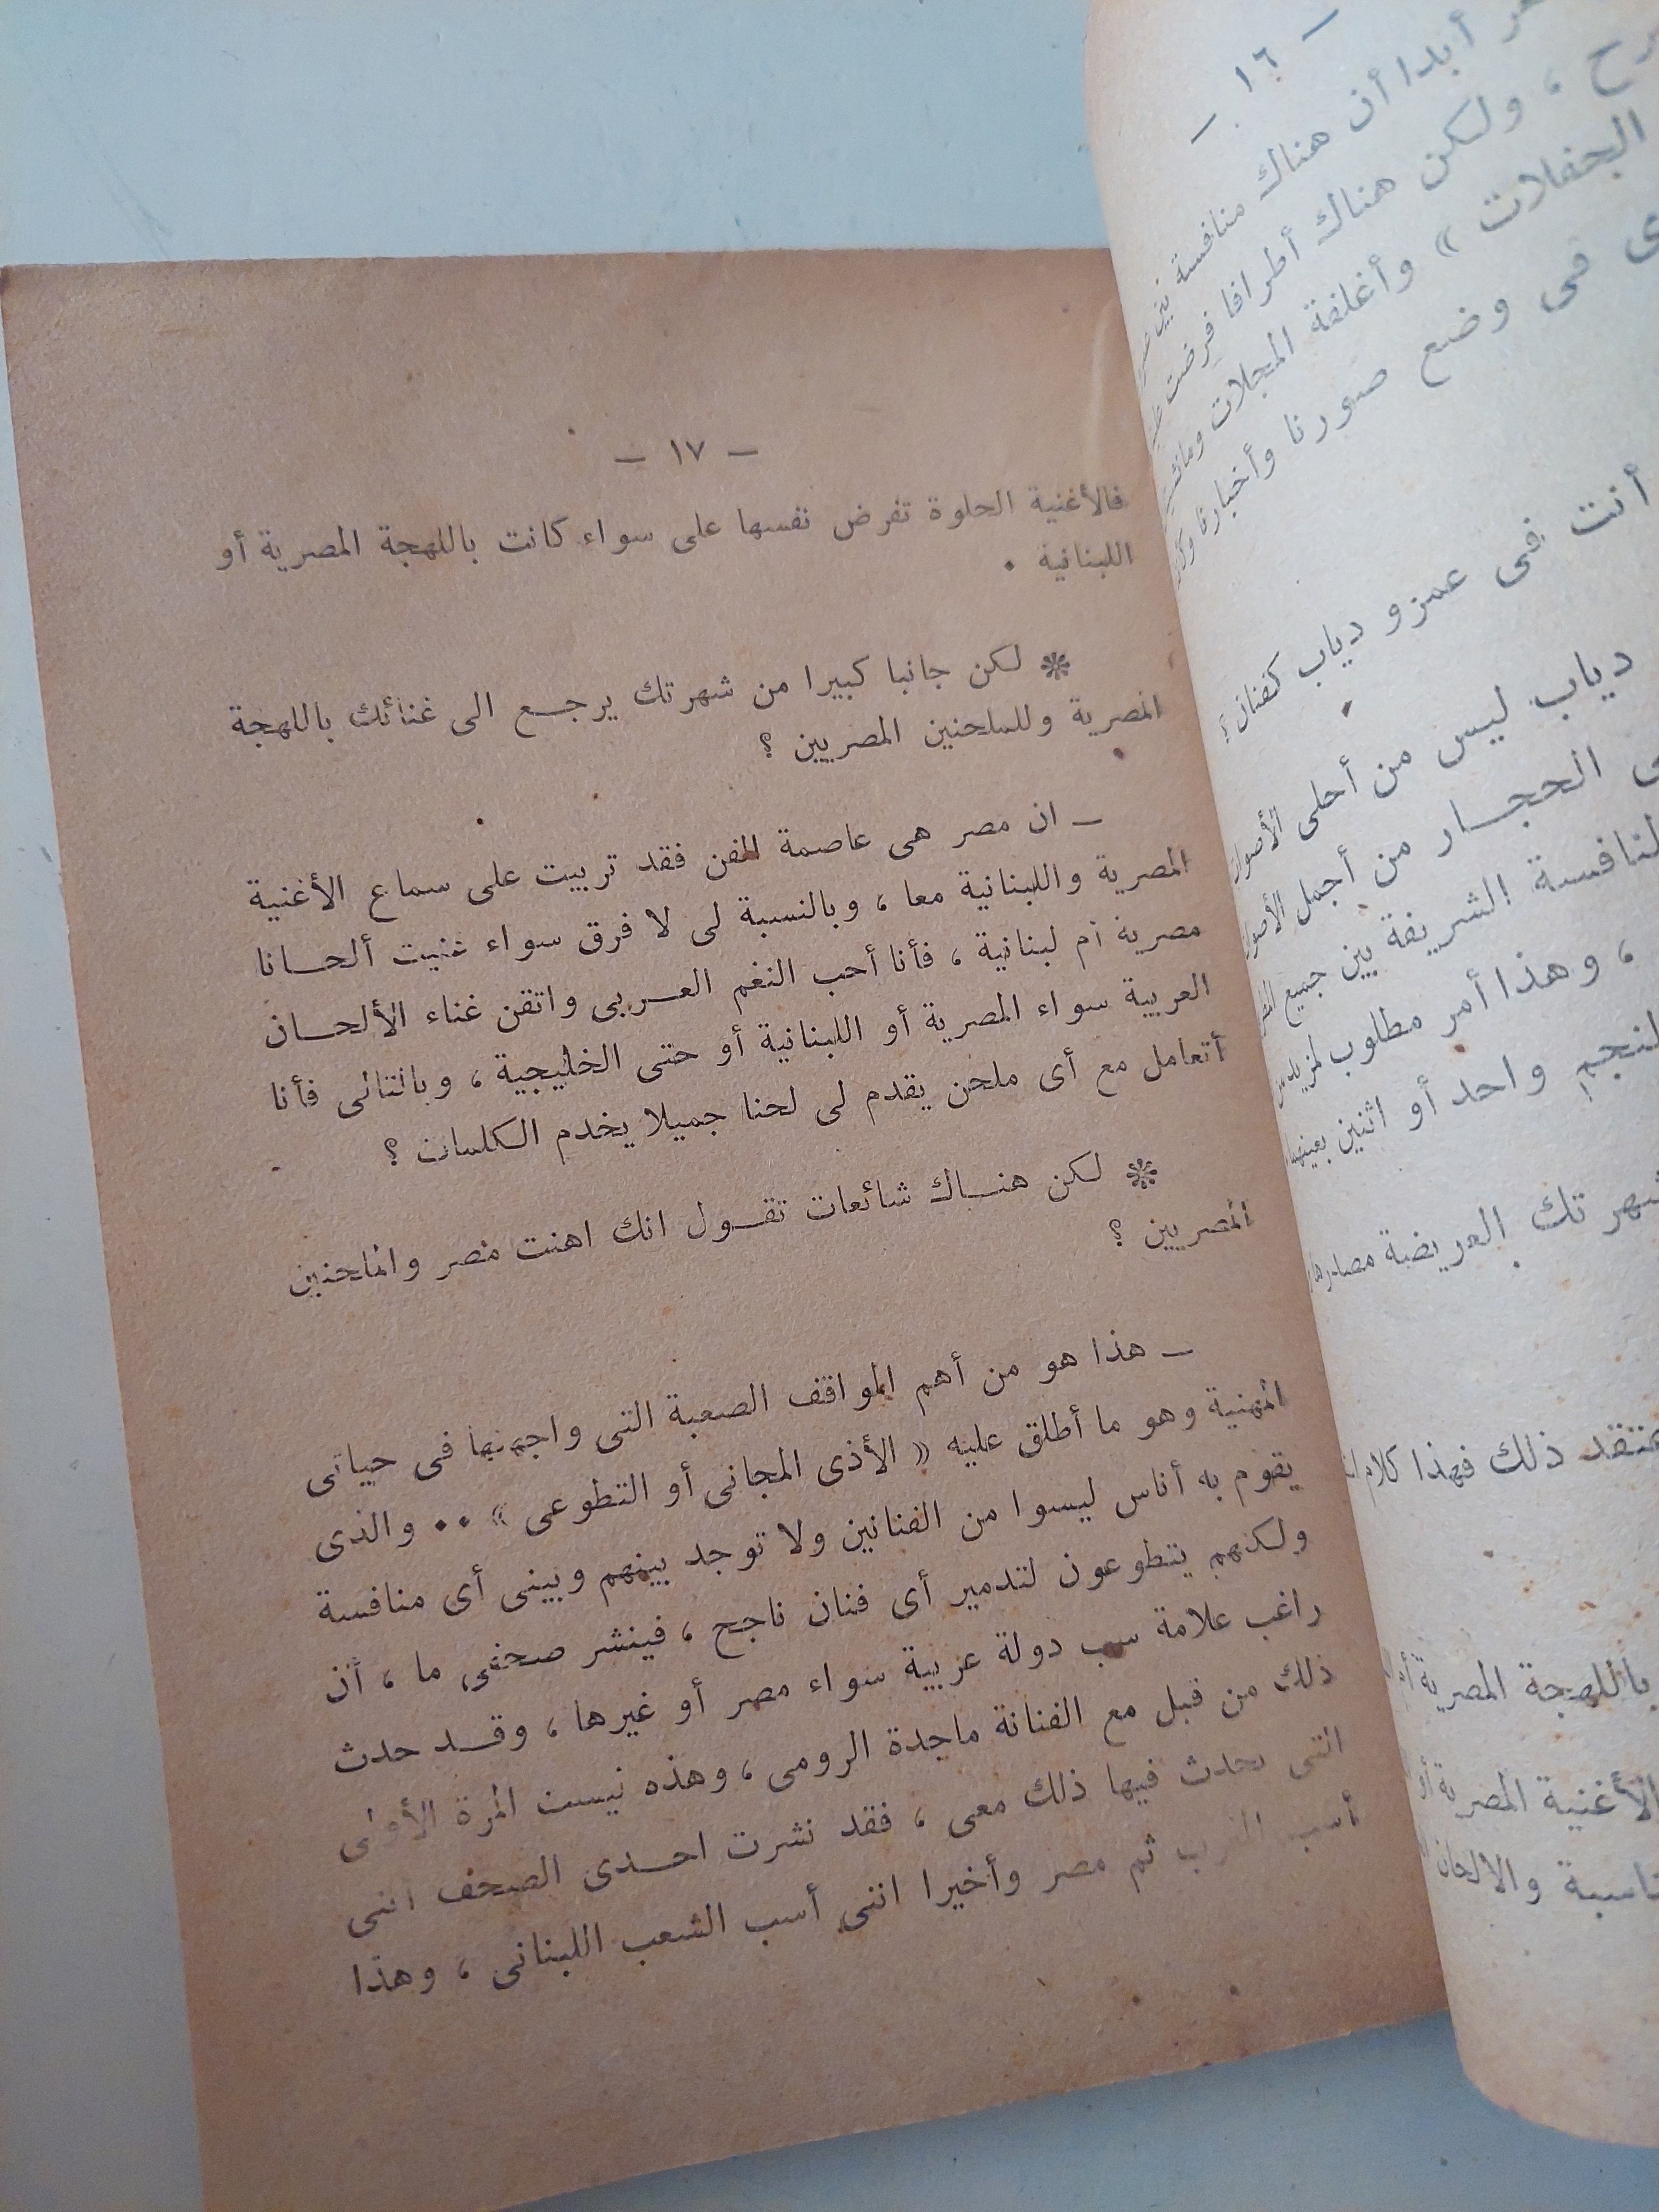 — ١٦ —
أبدا أن هناك منافسة بين
، ولكن هناك أطرافا فرضت
الحفلات » وأغلفة المجلات
فى وضع صورنا وأخبارنا
أنت فى عمرو دياب كفنان ؟
دياب ليس من أحلى الأصوات
الحجار من أجمل الأصوات
الشريفة بين جميع
، وهذا أمر مطلوب لمزيد من
واحد أو اثنين بعينهما
العريضة مصدرها
ذلك فهذا كلام
باللهجة المصرية
الأغنية المصرية أو
والالحان
— ١٧ —
فالأغنية الحلوة تفرض نفسها على سواء كانت باللهجة المصرية أو
اللبنانية .
* لكن جانبا كبيرا من شهرتك يرجع الى غنائك باللهجة
المصرية وللملحنين المصريين ؟
— ان مصر هى عاصمة الفن فقد تربيت على سماع الأغنية
المصرية واللبنانية معا ، وبالنسبة لى لا فرق سواء غنيت ألحانا
مصرية أم لبنانية ، فأنا أحب النغم العربى واتقن غناء الألحان
العربية سواء المصرية أو اللبنانية أو حتى الخليجية ، وبالتالى فأنا
أتعامل مع أى ملحن يقدم لى لحنا جميلا يخدم الكلمات ؟
* لكن هناك شائعات تقول انك اهنت مصر والملحنين
المصريين ؟
— هذا هو من أهم المواقف الصعبة التى واجهتها فى حياتى
المهنية وهو ما أطلق عليه « الأذى المجانى أو التطوعى » .. والذى
يقوم به أناس ليسوا من الفنانين ولا توجد بينهم وبينى أى منافسة
ولكنهم يتطوعون لتدمير أى فنان ناجح ، فينشر صحفى ما ، أن
راغب علامة سب دولة عربية سواء مصر أو غيرها ، وقد حدث
ذلك من قبل مع الفنانة ماجدة الرومى ، وهذه ليست المرة الأولى
التى يحدث فيها ذلك معى ، فقد نشرت احدى الصحف اننى
أسب ثم مصر وأخيرا اننى أسب الشعب اللبنانى ، وهذا